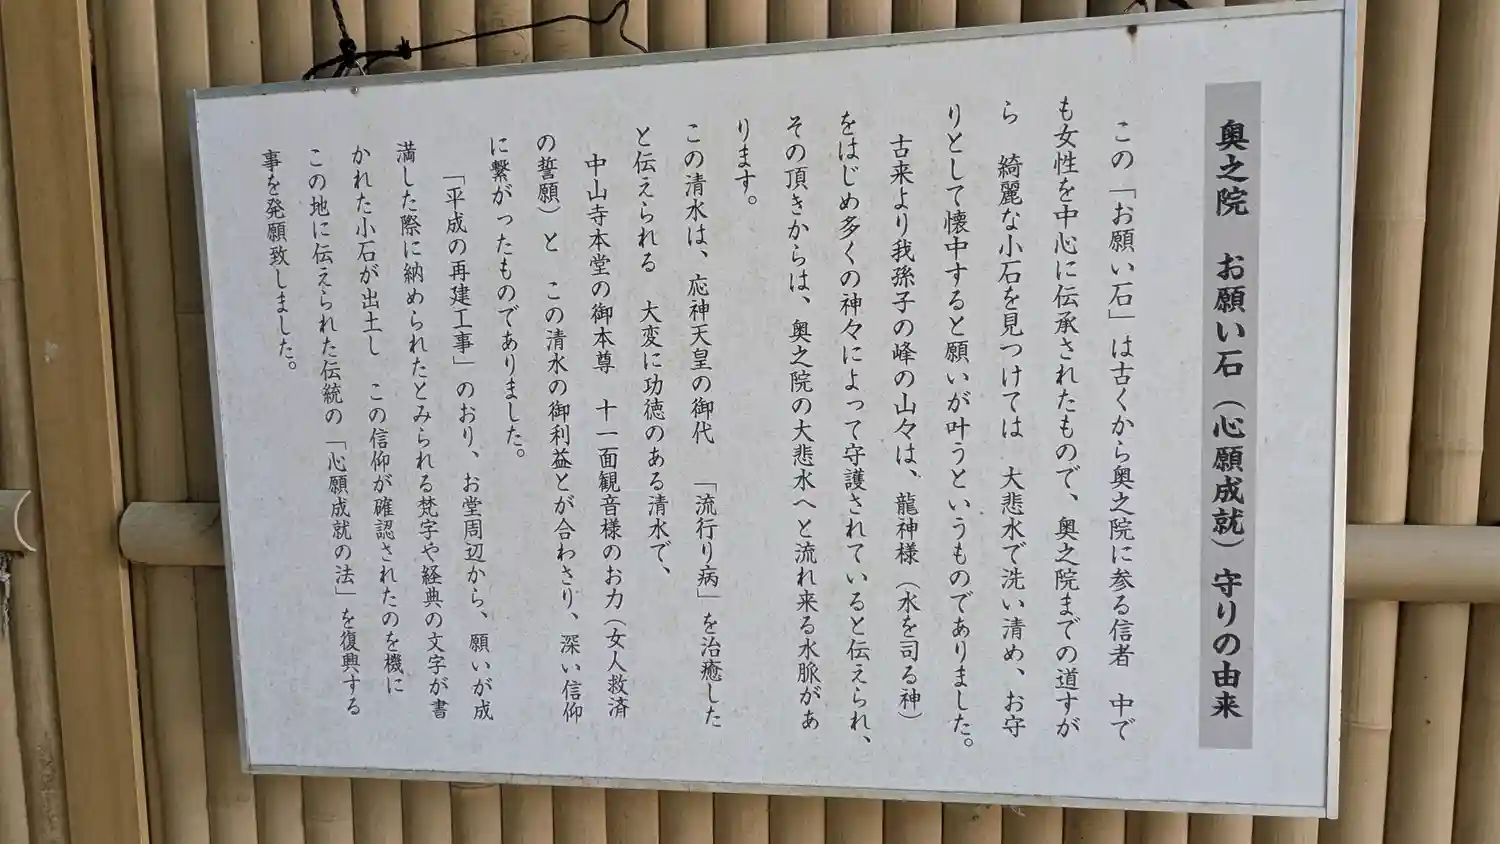 奥之院　お願い石（心願成就）守りの由来
この「お願い石」は古くから奥之院に参る信者　中で
も女性を中心に伝承されたもので、奥之院までの道すが
ら　綺麗な小石を見つけては　大悲水で洗い清め、お守
りとして懐中すると願いが叶うというものでありました。
古来より我孫子の峰の山々は、龍神様（水を司る神）
をはじめ多くの神々によって守護されていると伝えられ、
その頂きからは、奥之院の大悲水へと流れ来る水脈があ
ります。
この清水は、応神天皇の御代　「流行り病」を治癒した
と伝えられる　大変に功徳のある清水で、
中山寺本堂の御本尊　十一面観音様のお力（女人救済
の誓願）と　この清水の御利益とが合わさり、深い信仰
に繋がったものでありました。
「平成の再建工事」のおり、お堂周辺から、願いが成
満した際に納められたとみられる梵字や経典の文字が書
かれた小石が出土し　この信仰が確認されたのを機に
この地に伝えられた伝統の「心願成就の法」を復興する
事を発願致しました。